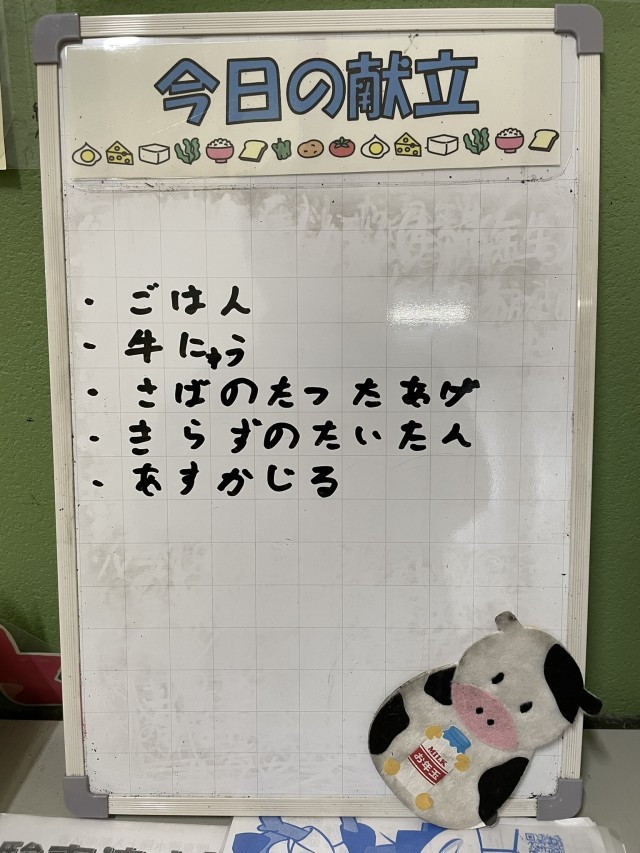 今日の献立
・ごはん
・牛にゅう
・さばのたつたあげ
・きらずのたいたん
・あすかじる
MILK
お年玉